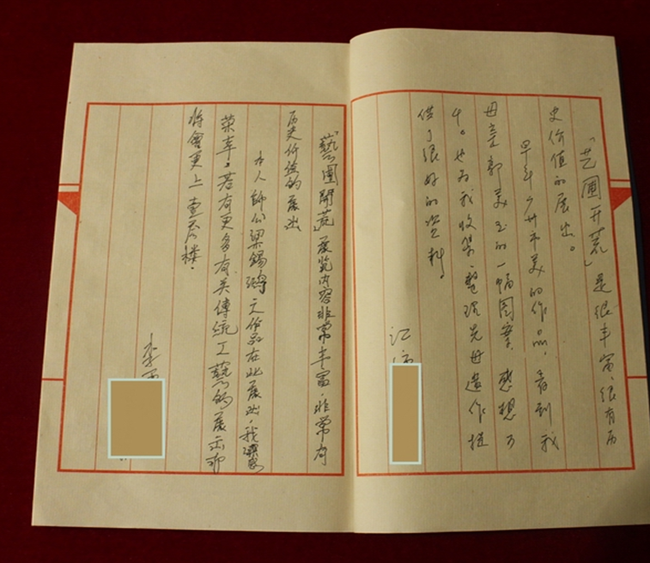 「艺圃开荒」是很丰富、很有历
史价值的展出。
早年 市美的作品，看到我
母亲郭美玉的一幅图案，感想万
千。也为我收集、整理先母遗作提
供了很好的资料。
江
「藝圃開荒」展览内容非常丰富，非常有
历史价值的展出
本人師公梁錫鴻之作品在此展出，我深感
荣幸。若有更多有关傳統工藝的展示，
將會更上壹层楼。
李